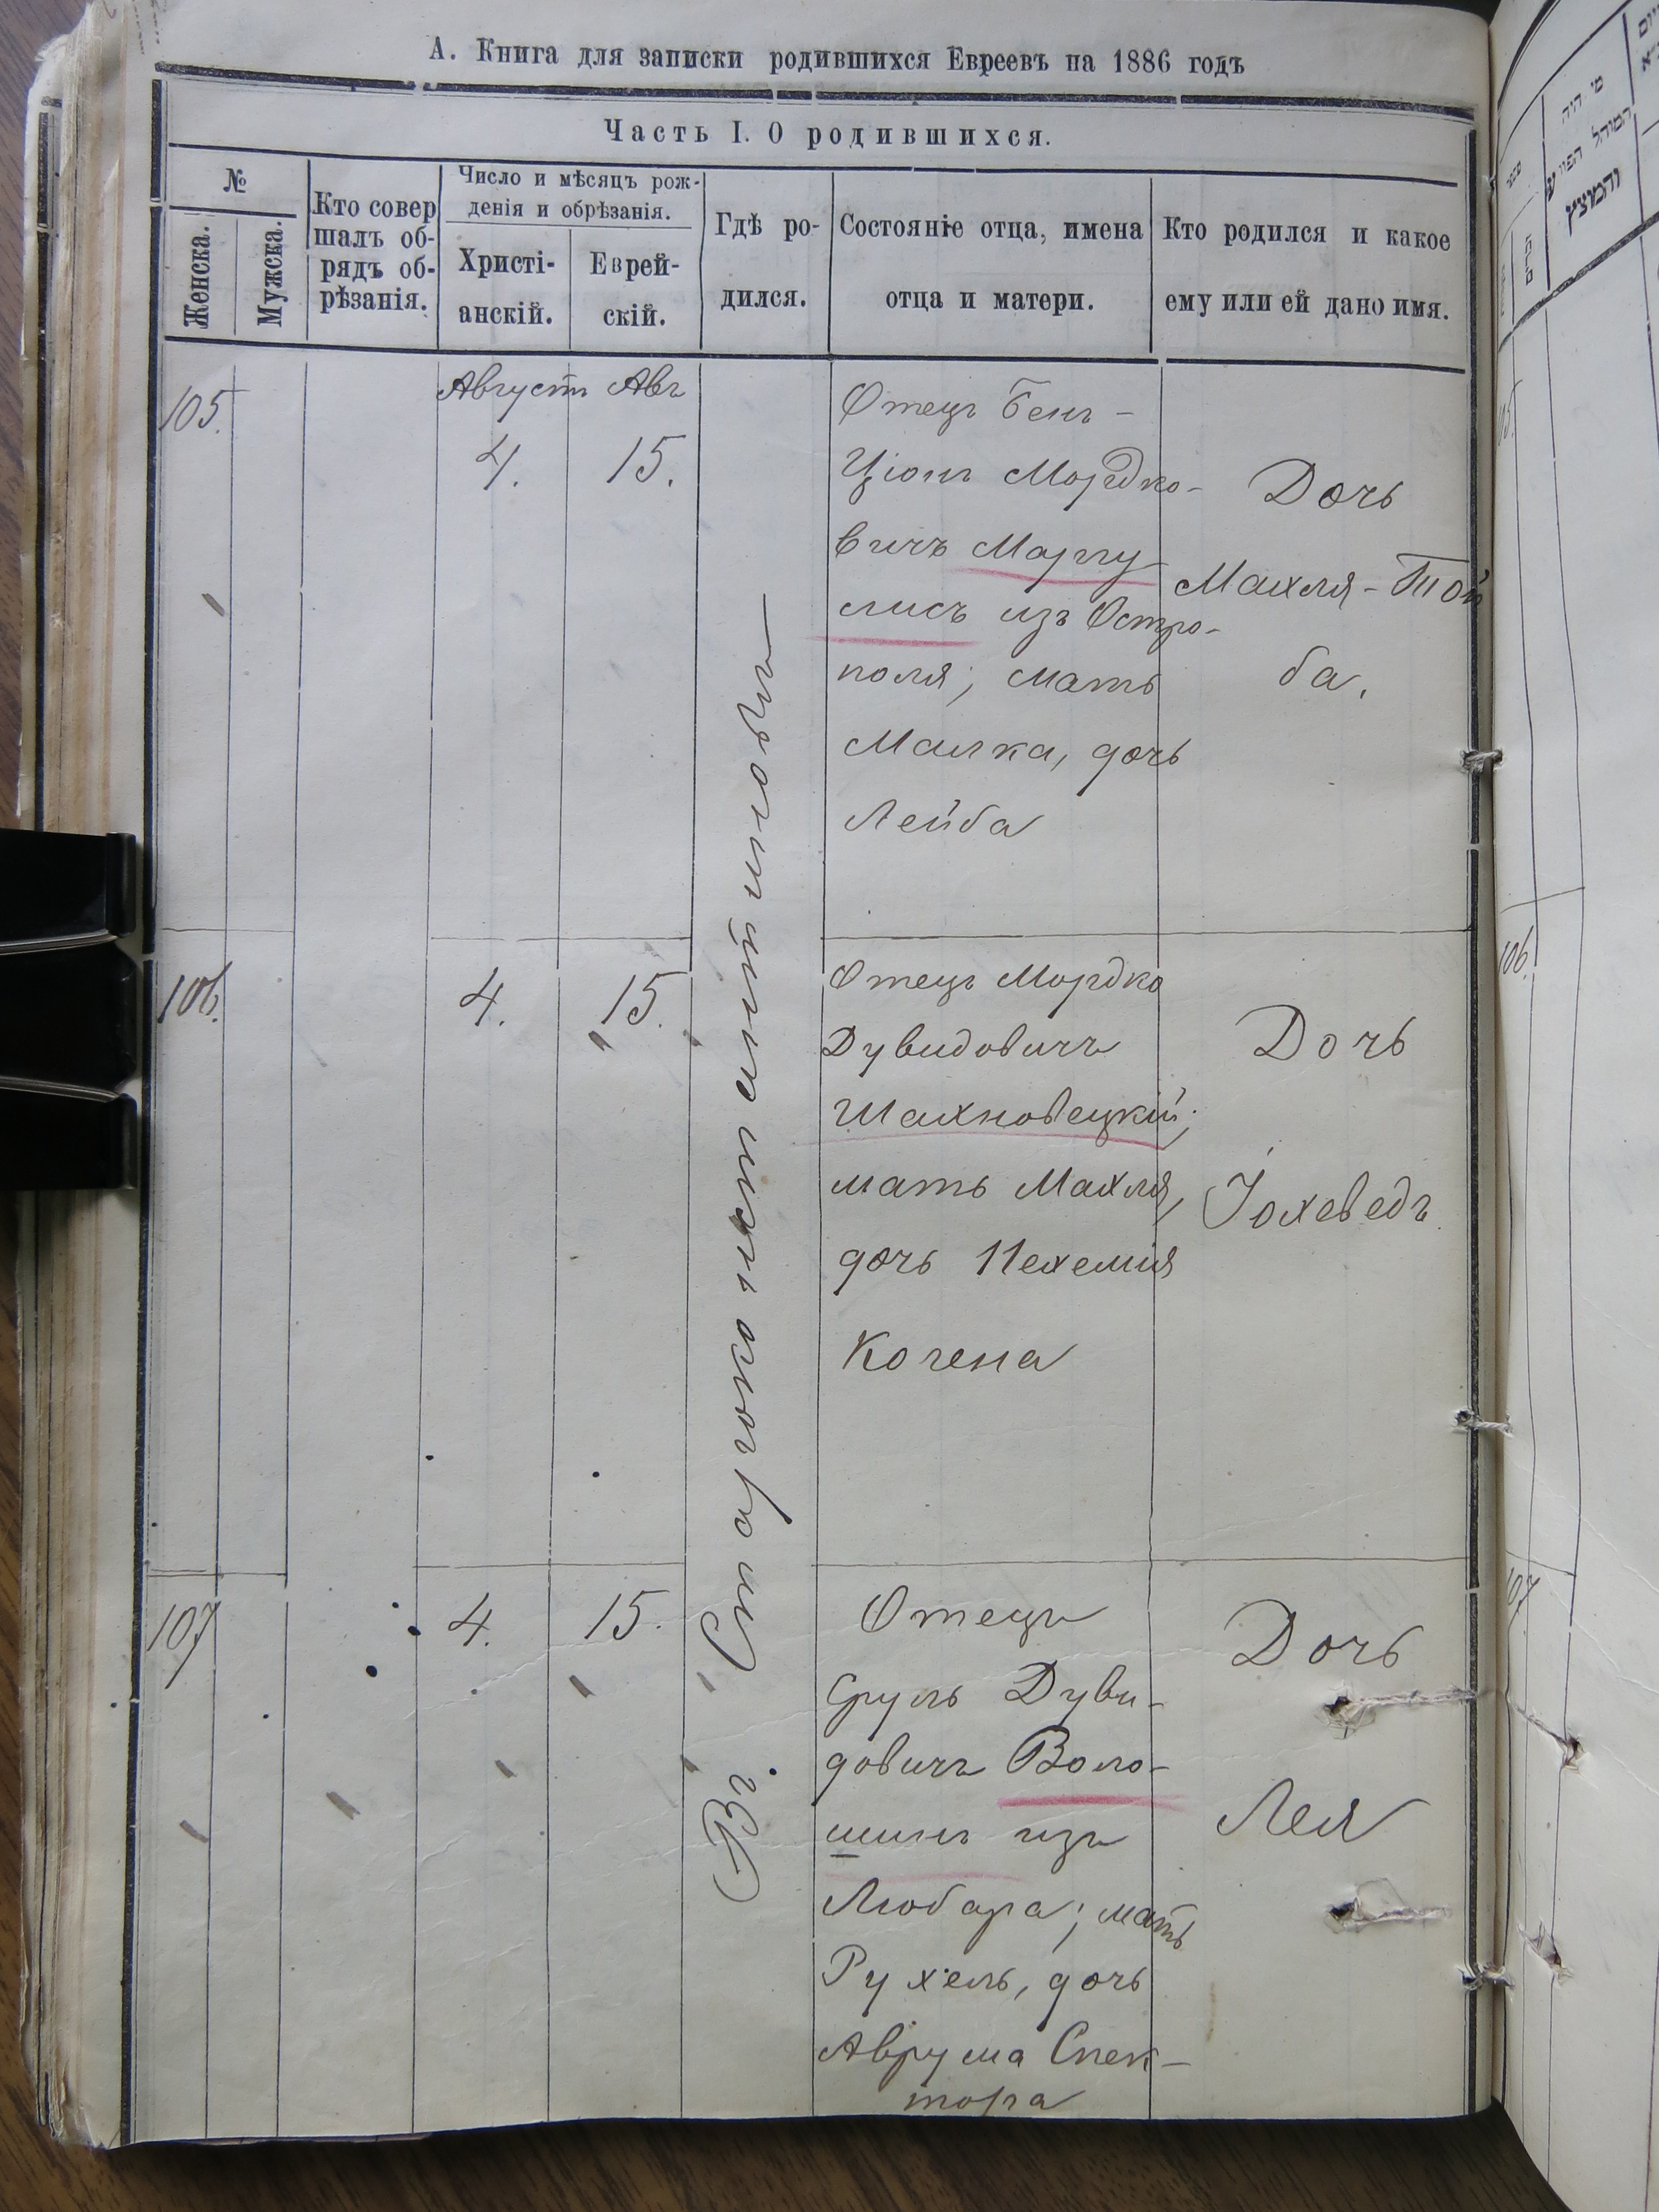 А. Книга для записки родившихся Евреевъ на 1886 годъ
Часть I. О родившихся.
№
Женска.
Мужска.
Кто совер
шалъ об-
рядъ об-
рѣзанія.
Число и мѣсяцъ рож-
денія и обрѣзанія.
Христі-
анскій.
Еврей-
скій.
Гдѣ ро-
дился.
Состояніе отца, имена
отца и матери.
Кто родился и какое
ему или ей дано имя.
Въ Староконстантиновѣ
105.
Августъ Авъ
4. 15.
Отецъ Бенъ-
Ціонъ Мордко-
вичъ Маргу
лисъ изъ Остро-
поля; мать
Малка, дочь
Лейба
Дочь
Махля-Той
ба.
106.
4. 15.
Отецъ Мордко
Дувидовичъ
Шахновецкій;
мать Махля,
дочь Нехемія
Когена
Дочь
Іохеведъ
107
4. 15.
Отецъ
Сруль Дуви-
довичъ Воло-
шинъ изъ
Любара; мать
Рухель, дочь
Аврума Спек-
тора
Дочь
Лея
מי היה
המוהל הפורע
והמוצץ
105.
106.
107